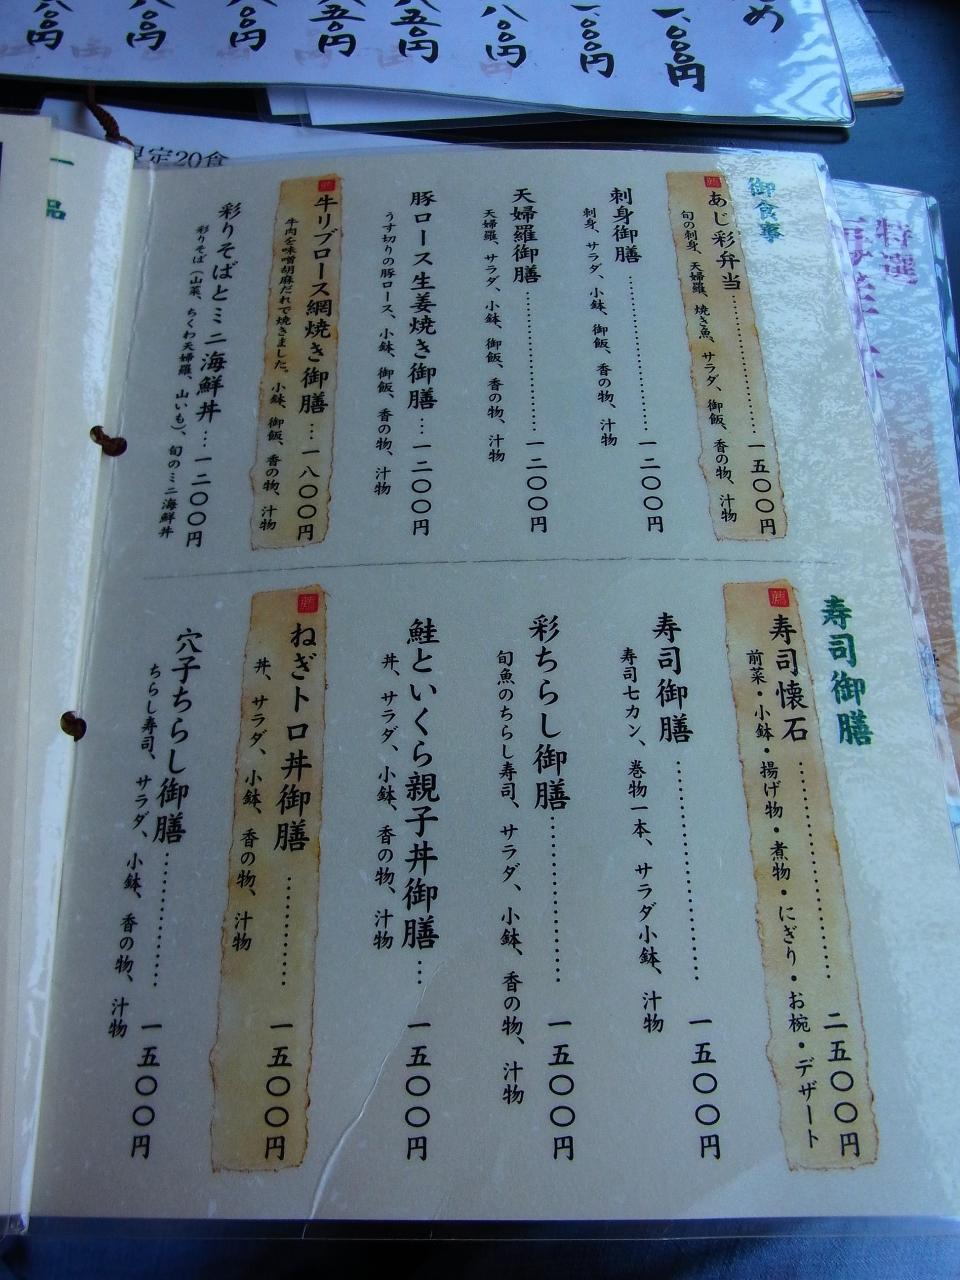 八〇〇円
八〇〇円
八〇〇円
五〇円
八五〇円
八〇〇円
一、〇〇〇円
一、〇〇〇円
め
限定20食
一品
特選
御食事
あじ彩弁当……一五〇〇円
旬の刺身、天婦羅、焼き魚、サラダ、御飯、香の物、汁物
刺身御膳……一二〇〇円
刺身、サラダ、小鉢、御飯、香の物、汁物
天婦羅御膳……一二〇〇円
天婦羅、サラダ、小鉢、御飯、香の物、汁物
豚ロース生姜焼き御膳…一二〇〇円
うす切りの豚ロース、小鉢、御飯、香の物、汁物
牛リブロース網焼き御膳…一八〇〇円
牛肉を味噌胡麻だれで焼きました。小鉢、御飯、香の物、汁物
彩りそばとミニ海鮮丼…一二〇〇円
彩りそば（山菜、ちくわ天婦羅、山いも）、旬のミニ海鮮丼
寿司御膳
寿司懐石……二五〇〇円
前菜・小鉢・揚げ物・煮物・にぎり・お椀・デザート
寿司御膳……一五〇〇円
寿司七カン、巻物一本、サラダ小鉢、汁物
彩ちらし御膳……一五〇〇円
旬魚のちらし寿司、サラダ、小鉢、香の物、汁物
鮭といくら親子丼御膳…一五〇〇円
丼、サラダ、小鉢、香の物、汁物
ねぎトロ丼御膳……一五〇〇円
丼、サラダ、小鉢、香の物、汁物
穴子ちらし御膳……一五〇〇円
ちらし寿司、サラダ、小鉢、香の物、汁物